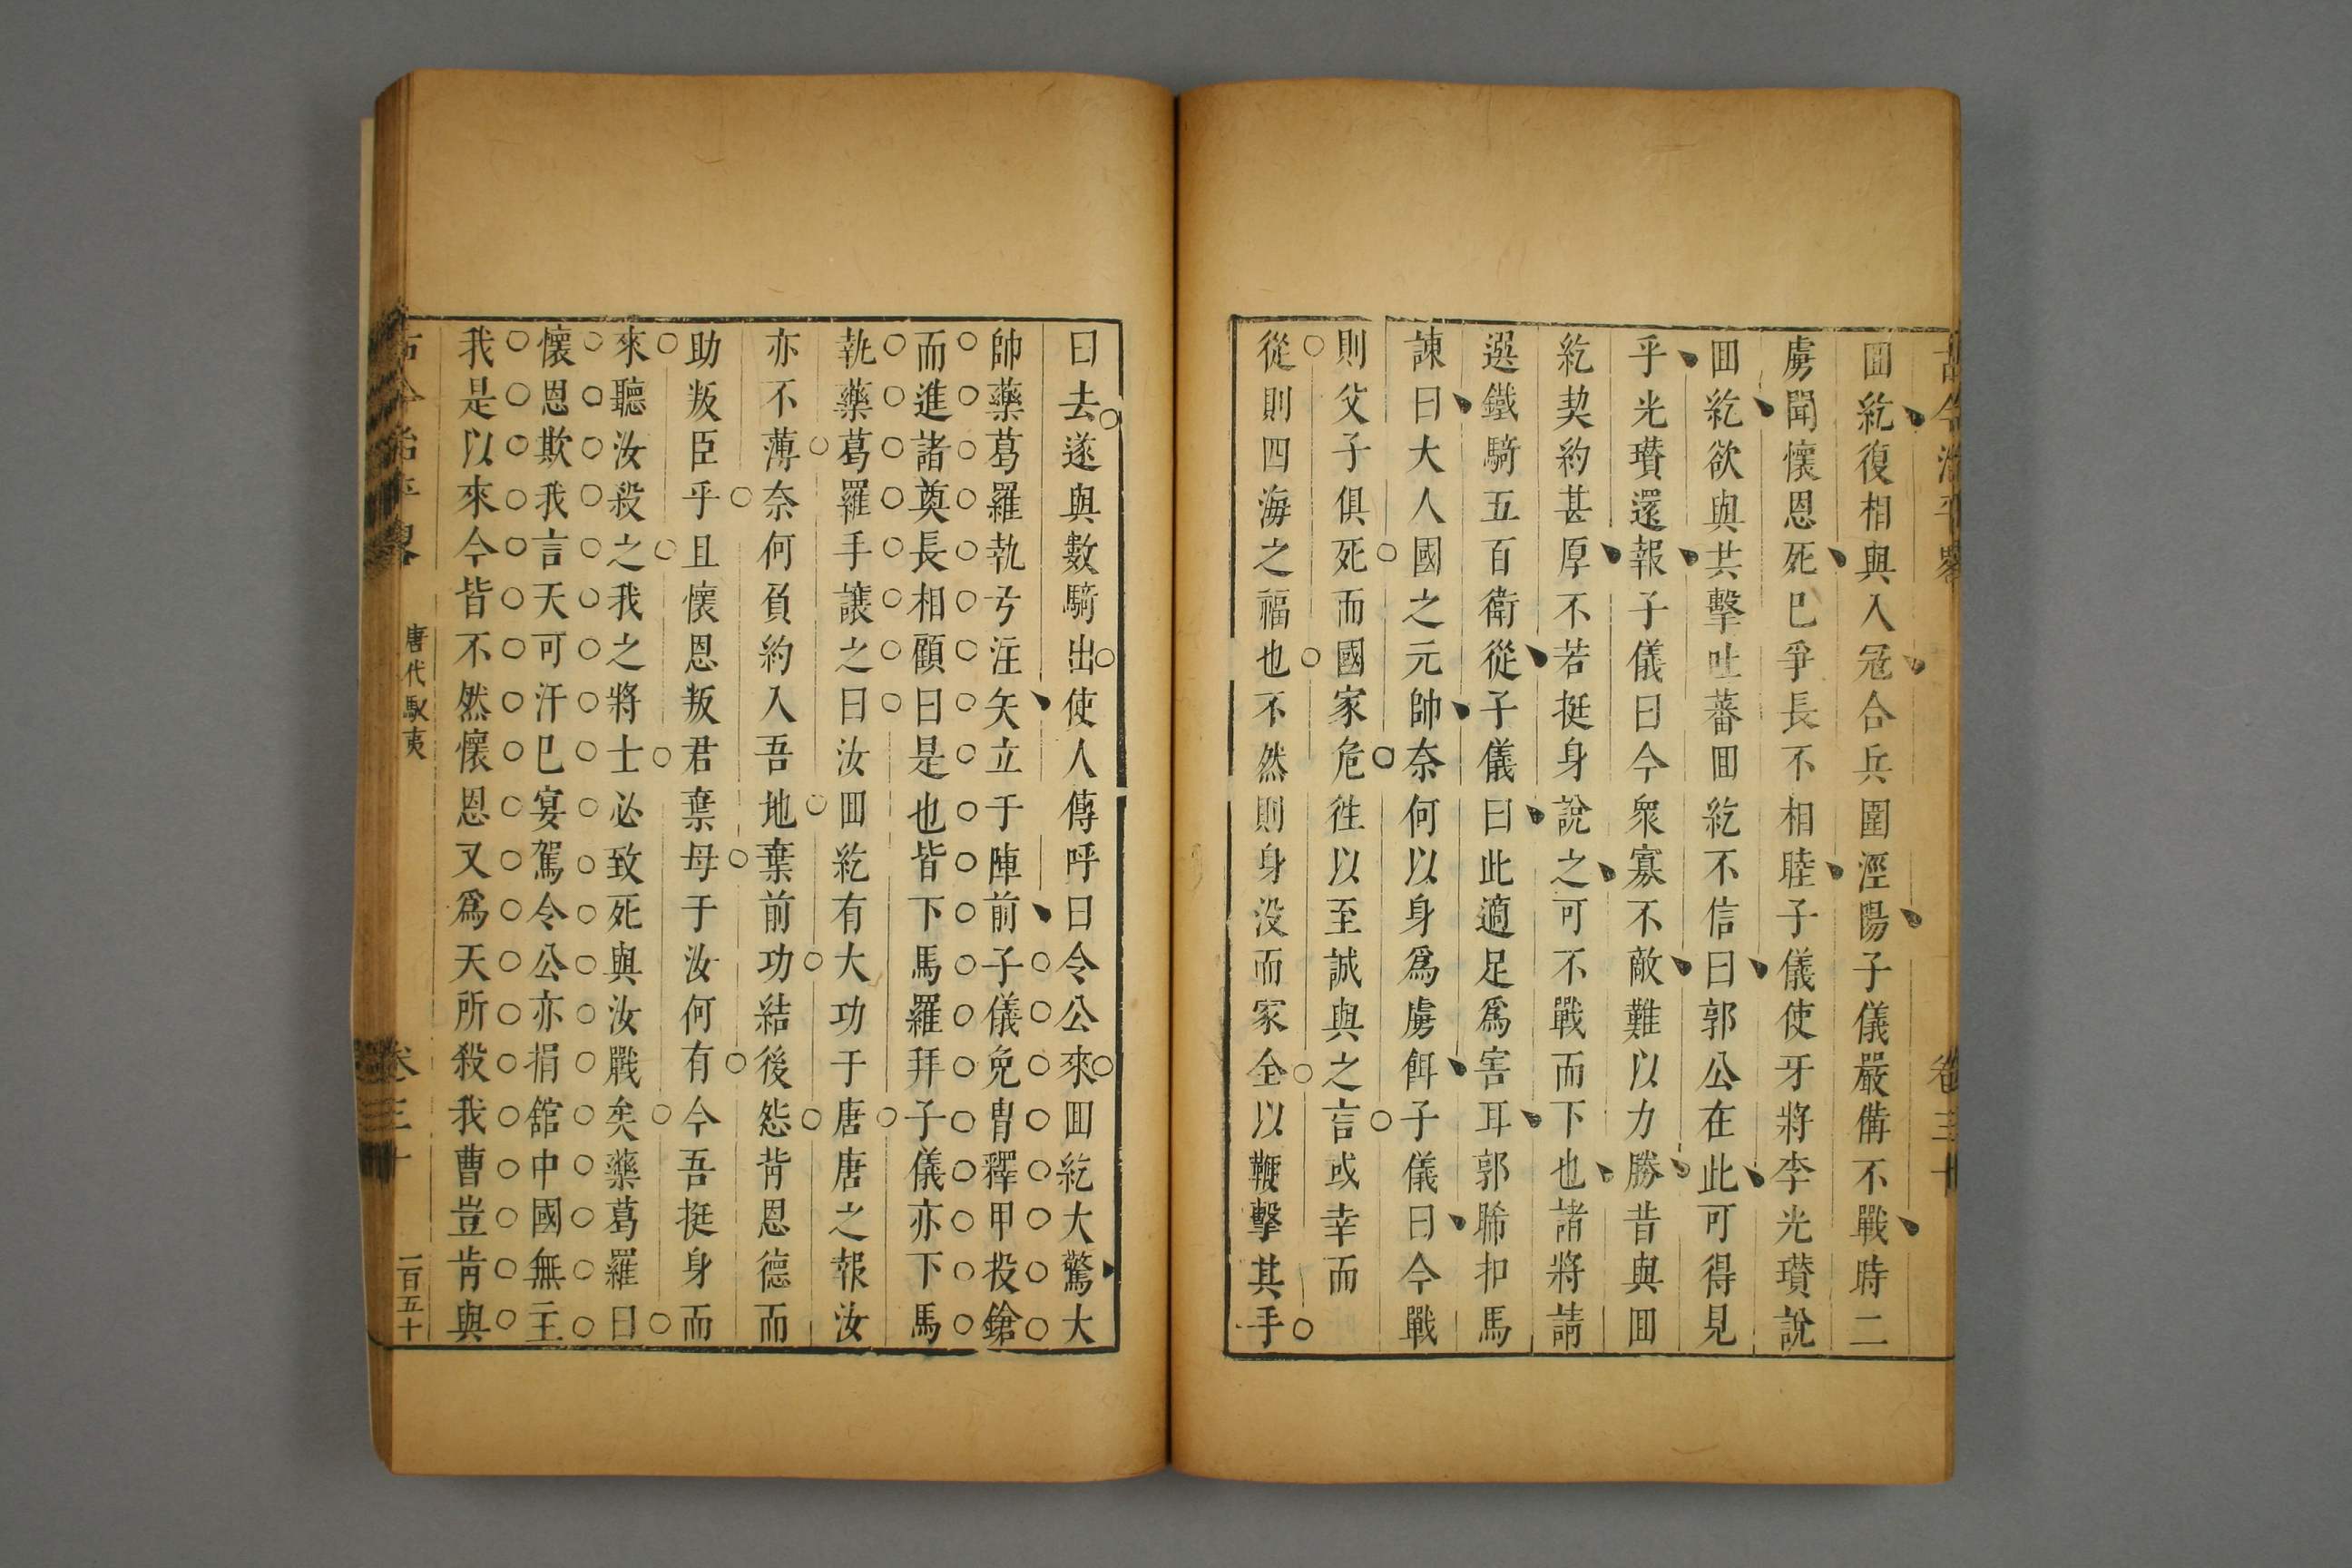 囬紇復相與入冦合兵圍涇陽子儀嚴備不戰時二
虜聞懷恩死巳爭長不相睦子儀使牙將李光瓚說
囬紇欲與共擊吐蕃囬紇不信曰郭公在此可得見
乎光瓚還報子儀曰今衆寡不敵難以力勝昔與囬
紇契約甚厚不若挺身說之可不戰而下也諸將請
選鐵騎五百衛從子儀曰此適足爲害耳郭晞扣馬
諫曰大人國之元帥奈何以身爲虜餌子儀曰今戰
則父子俱死而國家危徃以至誠與之言或幸而
從則四海之福也不然則身没而家全以鞭擊其手
曰去遂與數騎出使人傳呼曰令公來囬紇大驚大
帥藥葛羅執弓注矢立于陣前子儀免胄釋甲投鎗
而進諸奠長相顧曰是也皆下馬羅拜子儀亦下馬
執藥葛羅手讓之曰汝囬紇有大功于唐唐之報汝
亦不薄奈何負約入吾地棄前功結後怨背恩德而
助叛臣乎且懷恩叛君棄母于汝何有今吾挺身而
來聽汝殺之我之將士必致死與汝戰矣藥葛羅曰
懷恩欺我言天可汗巳宴駕令公亦捐舘中國無主
我是以來今皆不然懷恩又爲天所殺我曹豈肯與
古今治平畧
唐代馭夷
卷三十
一百五十